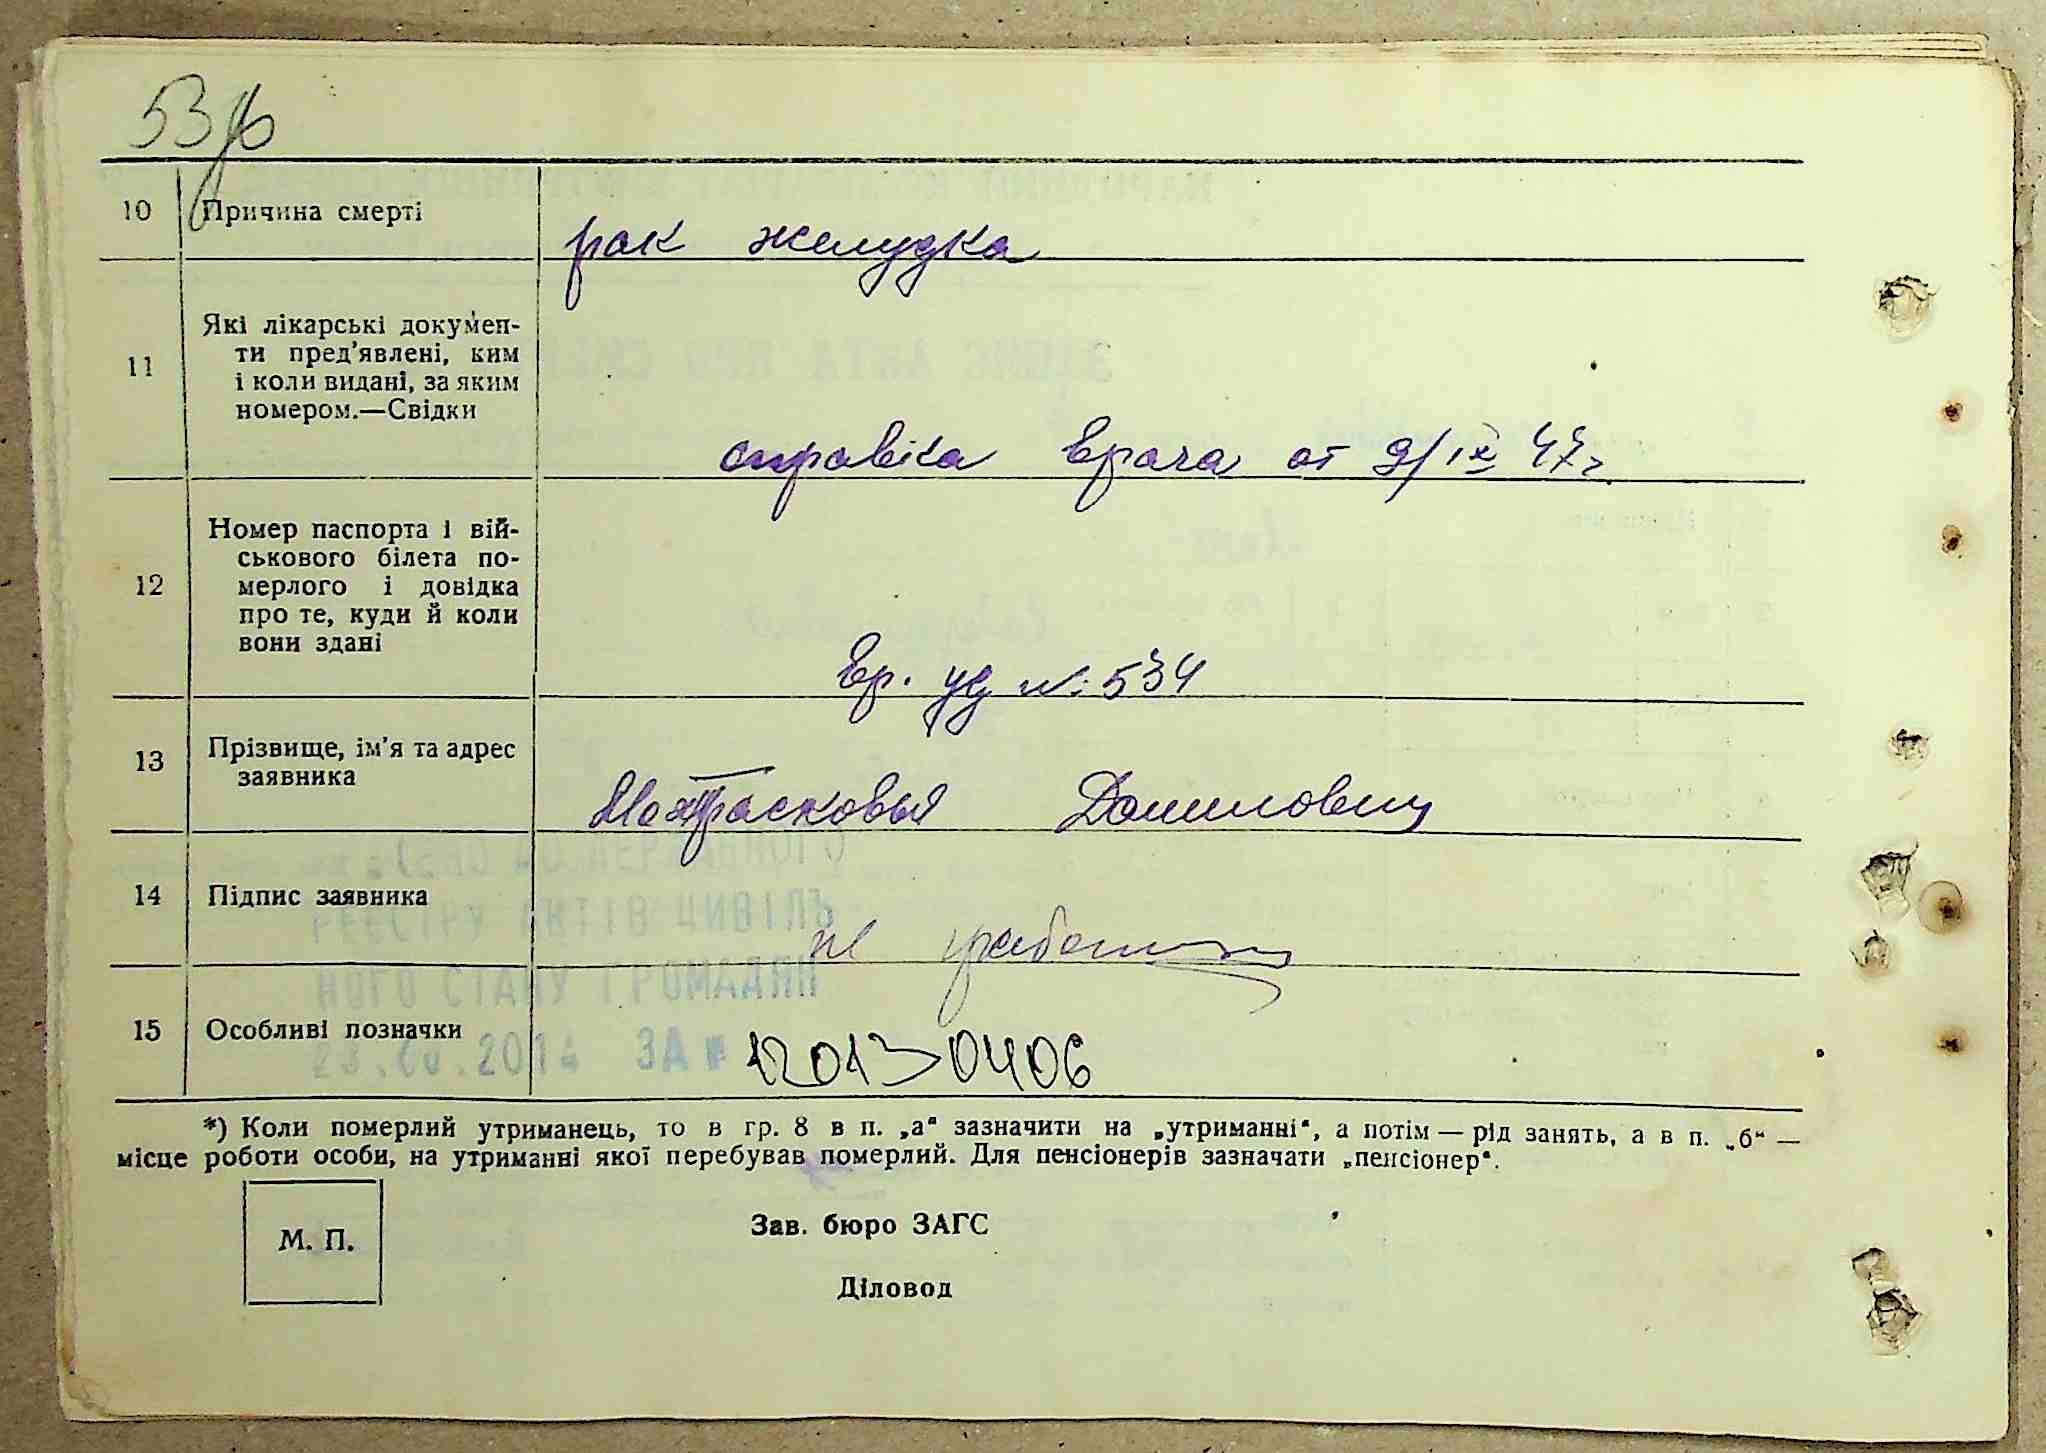 53
10 Причина смерті
рак желудка
11 Які лікарські докумен-
ти пред’явлені, ким
і коли видані, за яким
номером.—Свідки
справка врача от 9/IX 47г
12 Номер паспорта і вій-
ськового білета по-
мерлого і довідка
про те, куди й коли
вони здані
Вр. уд №: 534
13 Прізвище, ім’я та адрес
заявника
14 Підпис заявника
не
15 Особливі позначки
ДО ДЕРЖАВНОГО
РЕЄСТРУ АКТІВ ЦИВІЛЬ
НОГО СТАНУ ГРОМАДЯН
ЗА №
*) Коли померлий утриманець, то в гр. 8 в п. „а“ зазначити на „утриманні“, а потім — рід занять, а в п. „б“ —
місце роботи особи, на утриманні якої перебував померлий. Для пенсіонерів зазначати „пенсіонер“.
М. П.
Зав. бюро ЗАГС
Діловод